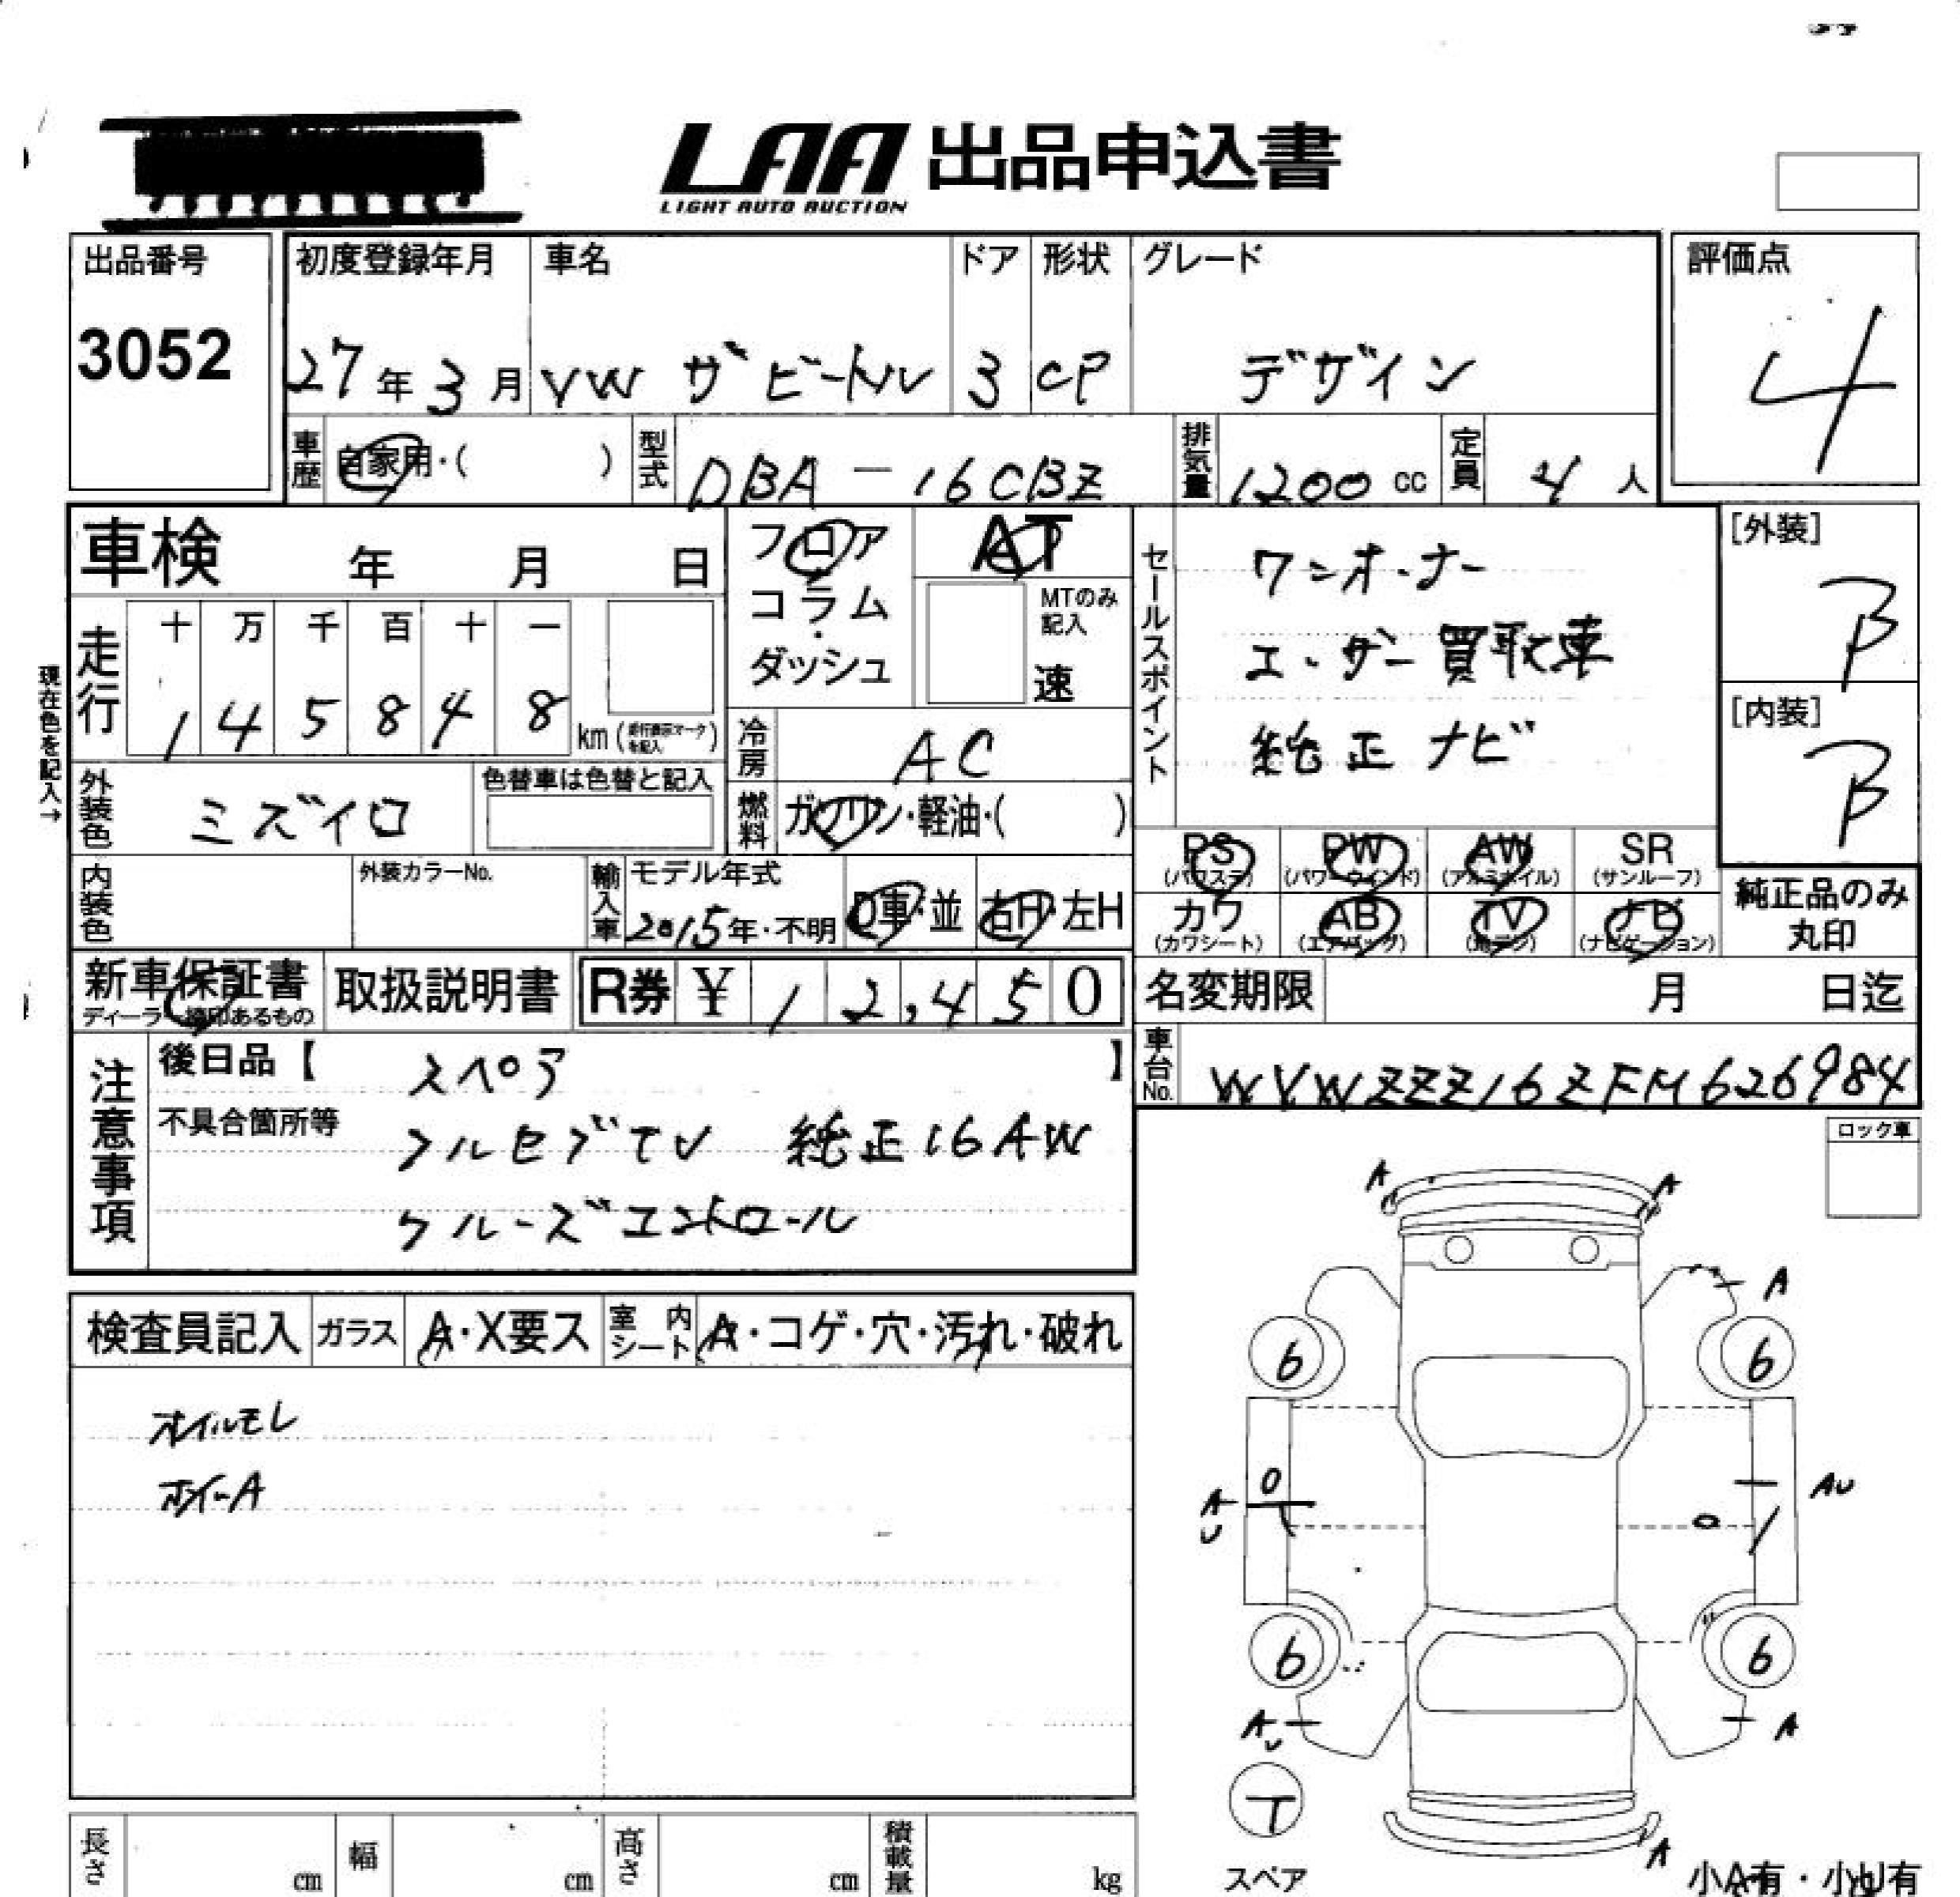 LAA 出品申込書
LIGHT AUTO AUCTION
出品番号 初度登録年月 車名 ドア 形状 グレード 評価点
3052 27年3月 VW ザビートル 3 CP デザイン 4
車歴 自家用・( ) 型式 DBA-16CBZ 排気量 1200 cc 定員 4 人
車検 年 月 日 フロア AT
コラム・ MTのみ記入
ダッシュ 速
セールスポイント
ワンオーナー
ユーザー買取車
純正ナビ
[外装]
B
[内装]
B
現在色を記入→
走行 十 万 千 百 十 一
1 4 5 8 4 8 km
冷房 AC
外装色 ミズイロ 色替車は色替と記入
燃料 ガソリン・軽油・( )
PS (パワステ) PW (パワーウインド) AW (アルミホイル) SR (サンルーフ)
内装色 外装カラーNo. 輸入車 モデル年式 2015年・不明 D車・並 右H・左H
カワ (カワシート) AB (エアバッグ) TV (地デジ) ナビ (ナビゲーション)
純正品のみ
丸印
新車保証書 取扱説明書 R券 ¥ 12,450
名変期限 月 日迄
車台No. WVWZZZ16ZFM626984
注意事項
後日品【 スペア 】
不具合箇所等 フルセグTV 純正16AW
クルーズコントロール
ロック車
検査員記入 ガラス A・X要ス 室内シート A・コゲ・穴・汚れ・破れ
オイルモレ
ホイールA
A A
A
6 6
0
AU AU
0
6 6
AU A
T
スペア
A
小A有・小U有
長さ cm 幅 cm 高さ cm 積載量 kg